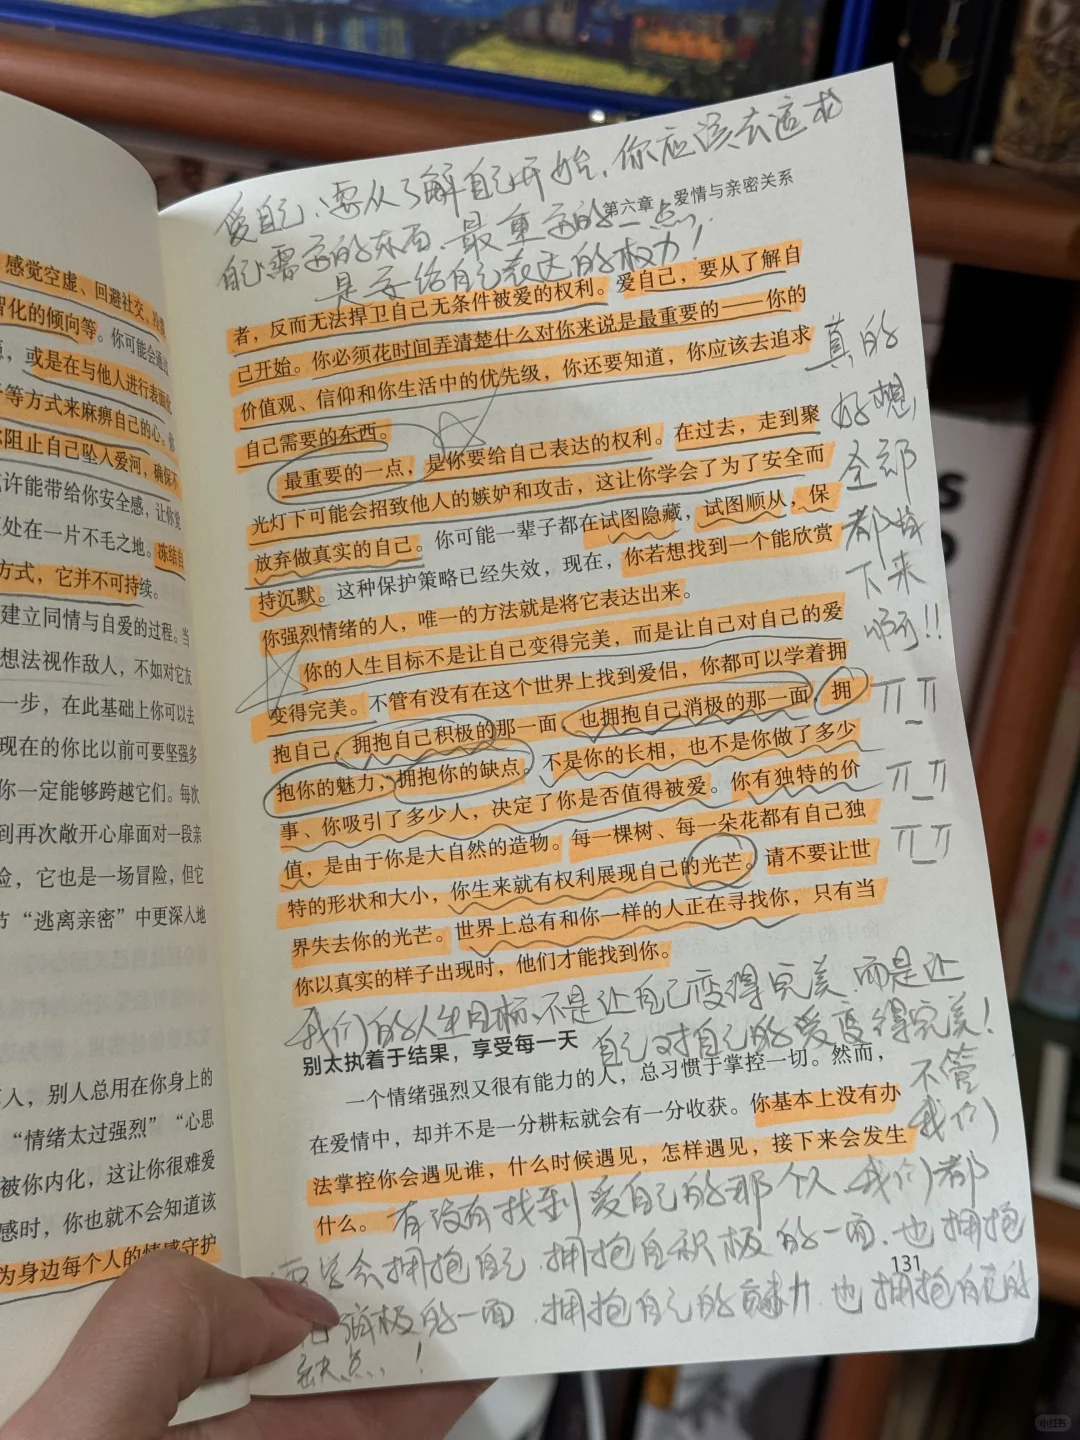 感觉空虚、回避社交、
智化的倾向等。你可能会通过
或是在与他人进行表面化
等方式来麻痹自己的心。你
阻止自己坠入爱河,确保不
许能带给你安全感,让你觉
处在一片不毛之地。冻结自
方式,它并不可持续。
建立同情与自爱的过程。当
想法视作敌人,不如对它友
一步,在此基础上你可以去
现在的你比以前可要坚强多
你一定能够跨越它们。每次
到再次敞开心扉面对一段亲
险,它也是一场冒险,但它
节“逃离亲密”中更深入地
人,别人总用在你身上的
“情绪太过强烈”“心思
被你内化,这让你很难爱
感时,你也就不会知道该
为身边每个人的情感守护
爱自己、要从了解自己开始,你应该去追求
自己需要的东西,最重要的一点,
是要给自己表达的权力!
第六章 爱情与亲密关系
者,反而无法捍卫自己无条件被爱的权利。爱自己,要从了解自
己开始。你必须花时间弄清楚什么对你来说是最重要的——你的
价值观、信仰和你生活中的优先级,你还要知道,你应该去追求
自己需要的东西。
最重要的一点,是你要给自己表达的权利。在过去,走到聚
光灯下可能会招致他人的嫉妒和攻击,这让你学会了为了安全而
放弃做真实的自己。你可能一辈子都在试图隐藏,试图顺从,保
持沉默。这种保护策略已经失效,现在,你若想找到一个能欣赏
你强烈情绪的人,唯一的方法就是将它表达出来。
你的人生目标不是让自己变得完美,而是让自己对自己的爱
变得完美。不管有没有在这个世界上找到爱侣,你都可以学着拥
抱自己,拥抱自己积极的那一面,也拥抱自己消极的那一面,拥
抱你的魅力,拥抱你的缺点。不是你的长相,也不是你做了多少
事、你吸引了多少人,决定了你是否值得被爱。你有独特的价
值,是由于你是大自然的造物。每一棵树、每一朵花都有自己独
特的形状和大小,你生来就有权利展现自己的光芒。请不要让世
界失去你的光芒。世界上总有和你一样的人正在寻找你,只有当
你以真实的样子出现时,他们才能找到你。
真的
好想
全部
都
下来
啊!!
我们的人生目标,不是让自己变得完美,而是让
自己对自己的爱变得完美!
别太执着于结果,享受每一天
一个情绪强烈又很有能力的人,总习惯于掌控一切。然而,
在爱情中,却并不是一分耕耘就会有一分收获。你基本上没有办
法掌控你会遇见谁,什么时候遇见,怎样遇见,接下来会发生
什么。
不管
我们
有没有找到爱自己的那个人,我们都
要学会拥抱自己,拥抱自己积极的一面,也拥抱
消极的一面,拥抱自己的魅力,也拥抱自己的
缺点!
131
小红书